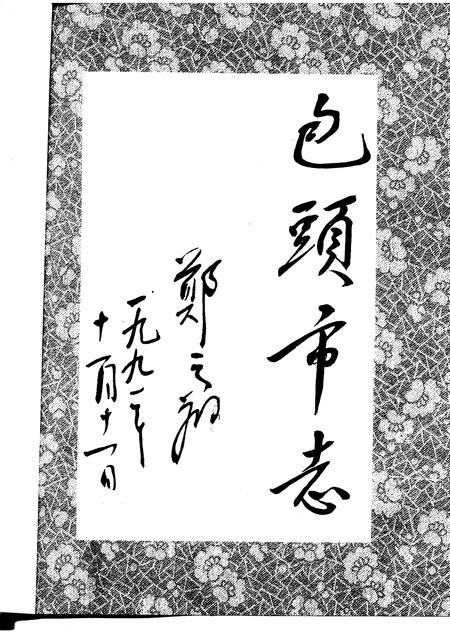 包頭市志
郑天翔
一九九一年
十一月十一日